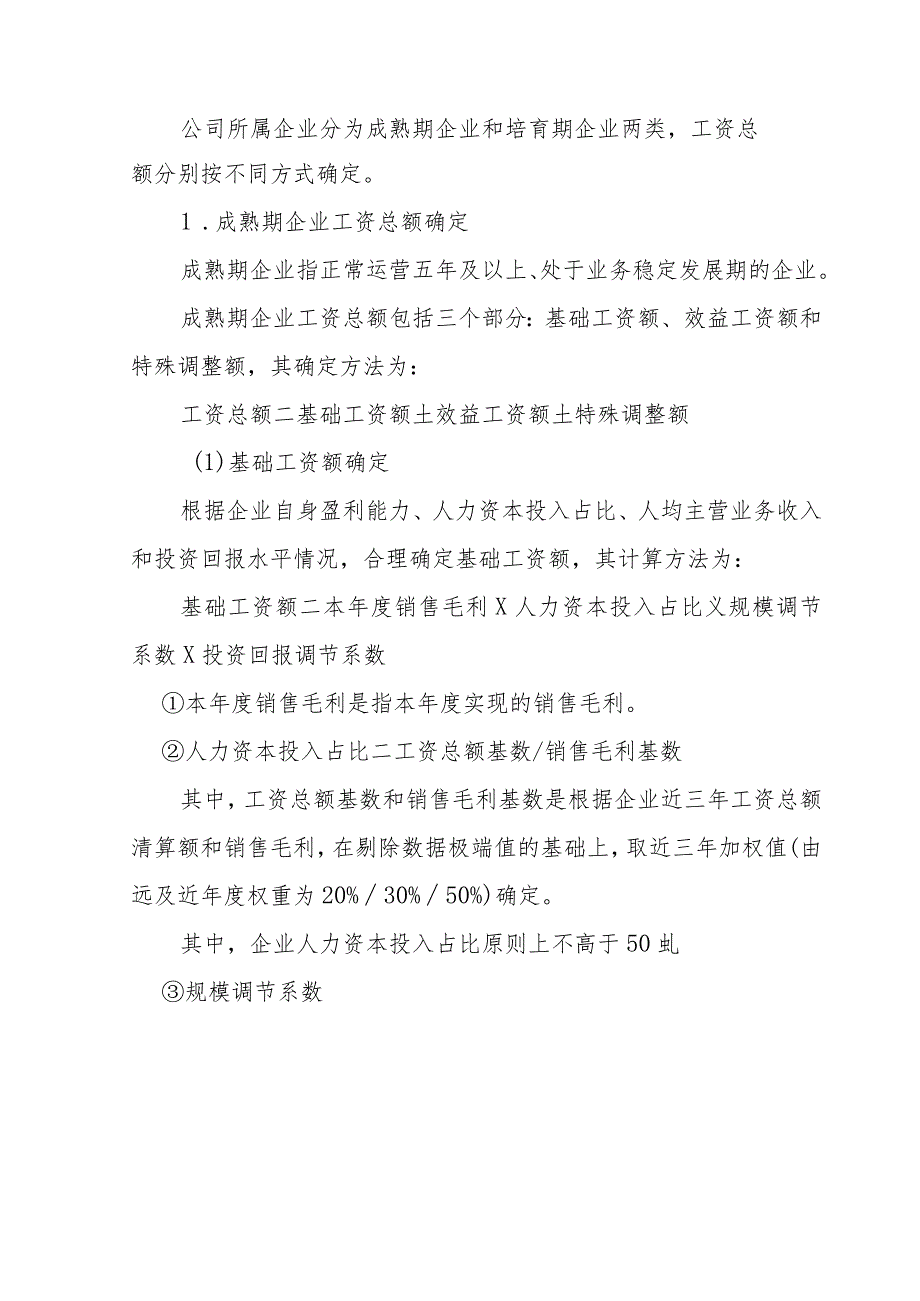 公司所属企业分为成熟期企业和培育期企业两类，工资总
额分别按不同方式确定。
1 .成熟期企业工资总额确定
成熟期企业指正常运营五年及以上、处于业务稳定发展期的企业。
成熟期企业工资总额包括三个部分：基础工资额、效益工资额和
特殊调整额，其确定方法为：
工资总额二基础工资额土效益工资额土特殊调整额
(1)基础工资额确定
根据企业自身盈利能力、人力资本投入占比、人均主营业务收入
和投资回报水平情况，合理确定基础工资额，其计算方法为：
基础工资额二本年度销售毛利X人力资本投入占比义规模调节
系数X投资回报调节系数
①本年度销售毛利是指本年度实现的销售毛利。
②人力资本投入占比二工资总额基数/销售毛利基数
其中，工资总额基数和销售毛利基数是根据企业近三年工资总额
清算额和销售毛利，在剔除数据极端值的基础上，取近三年加权值(由
远及近年度权重为20%／30%／50%)确定。
其中，企业人力资本投入占比原则上不高于50虬
③规模调节系数